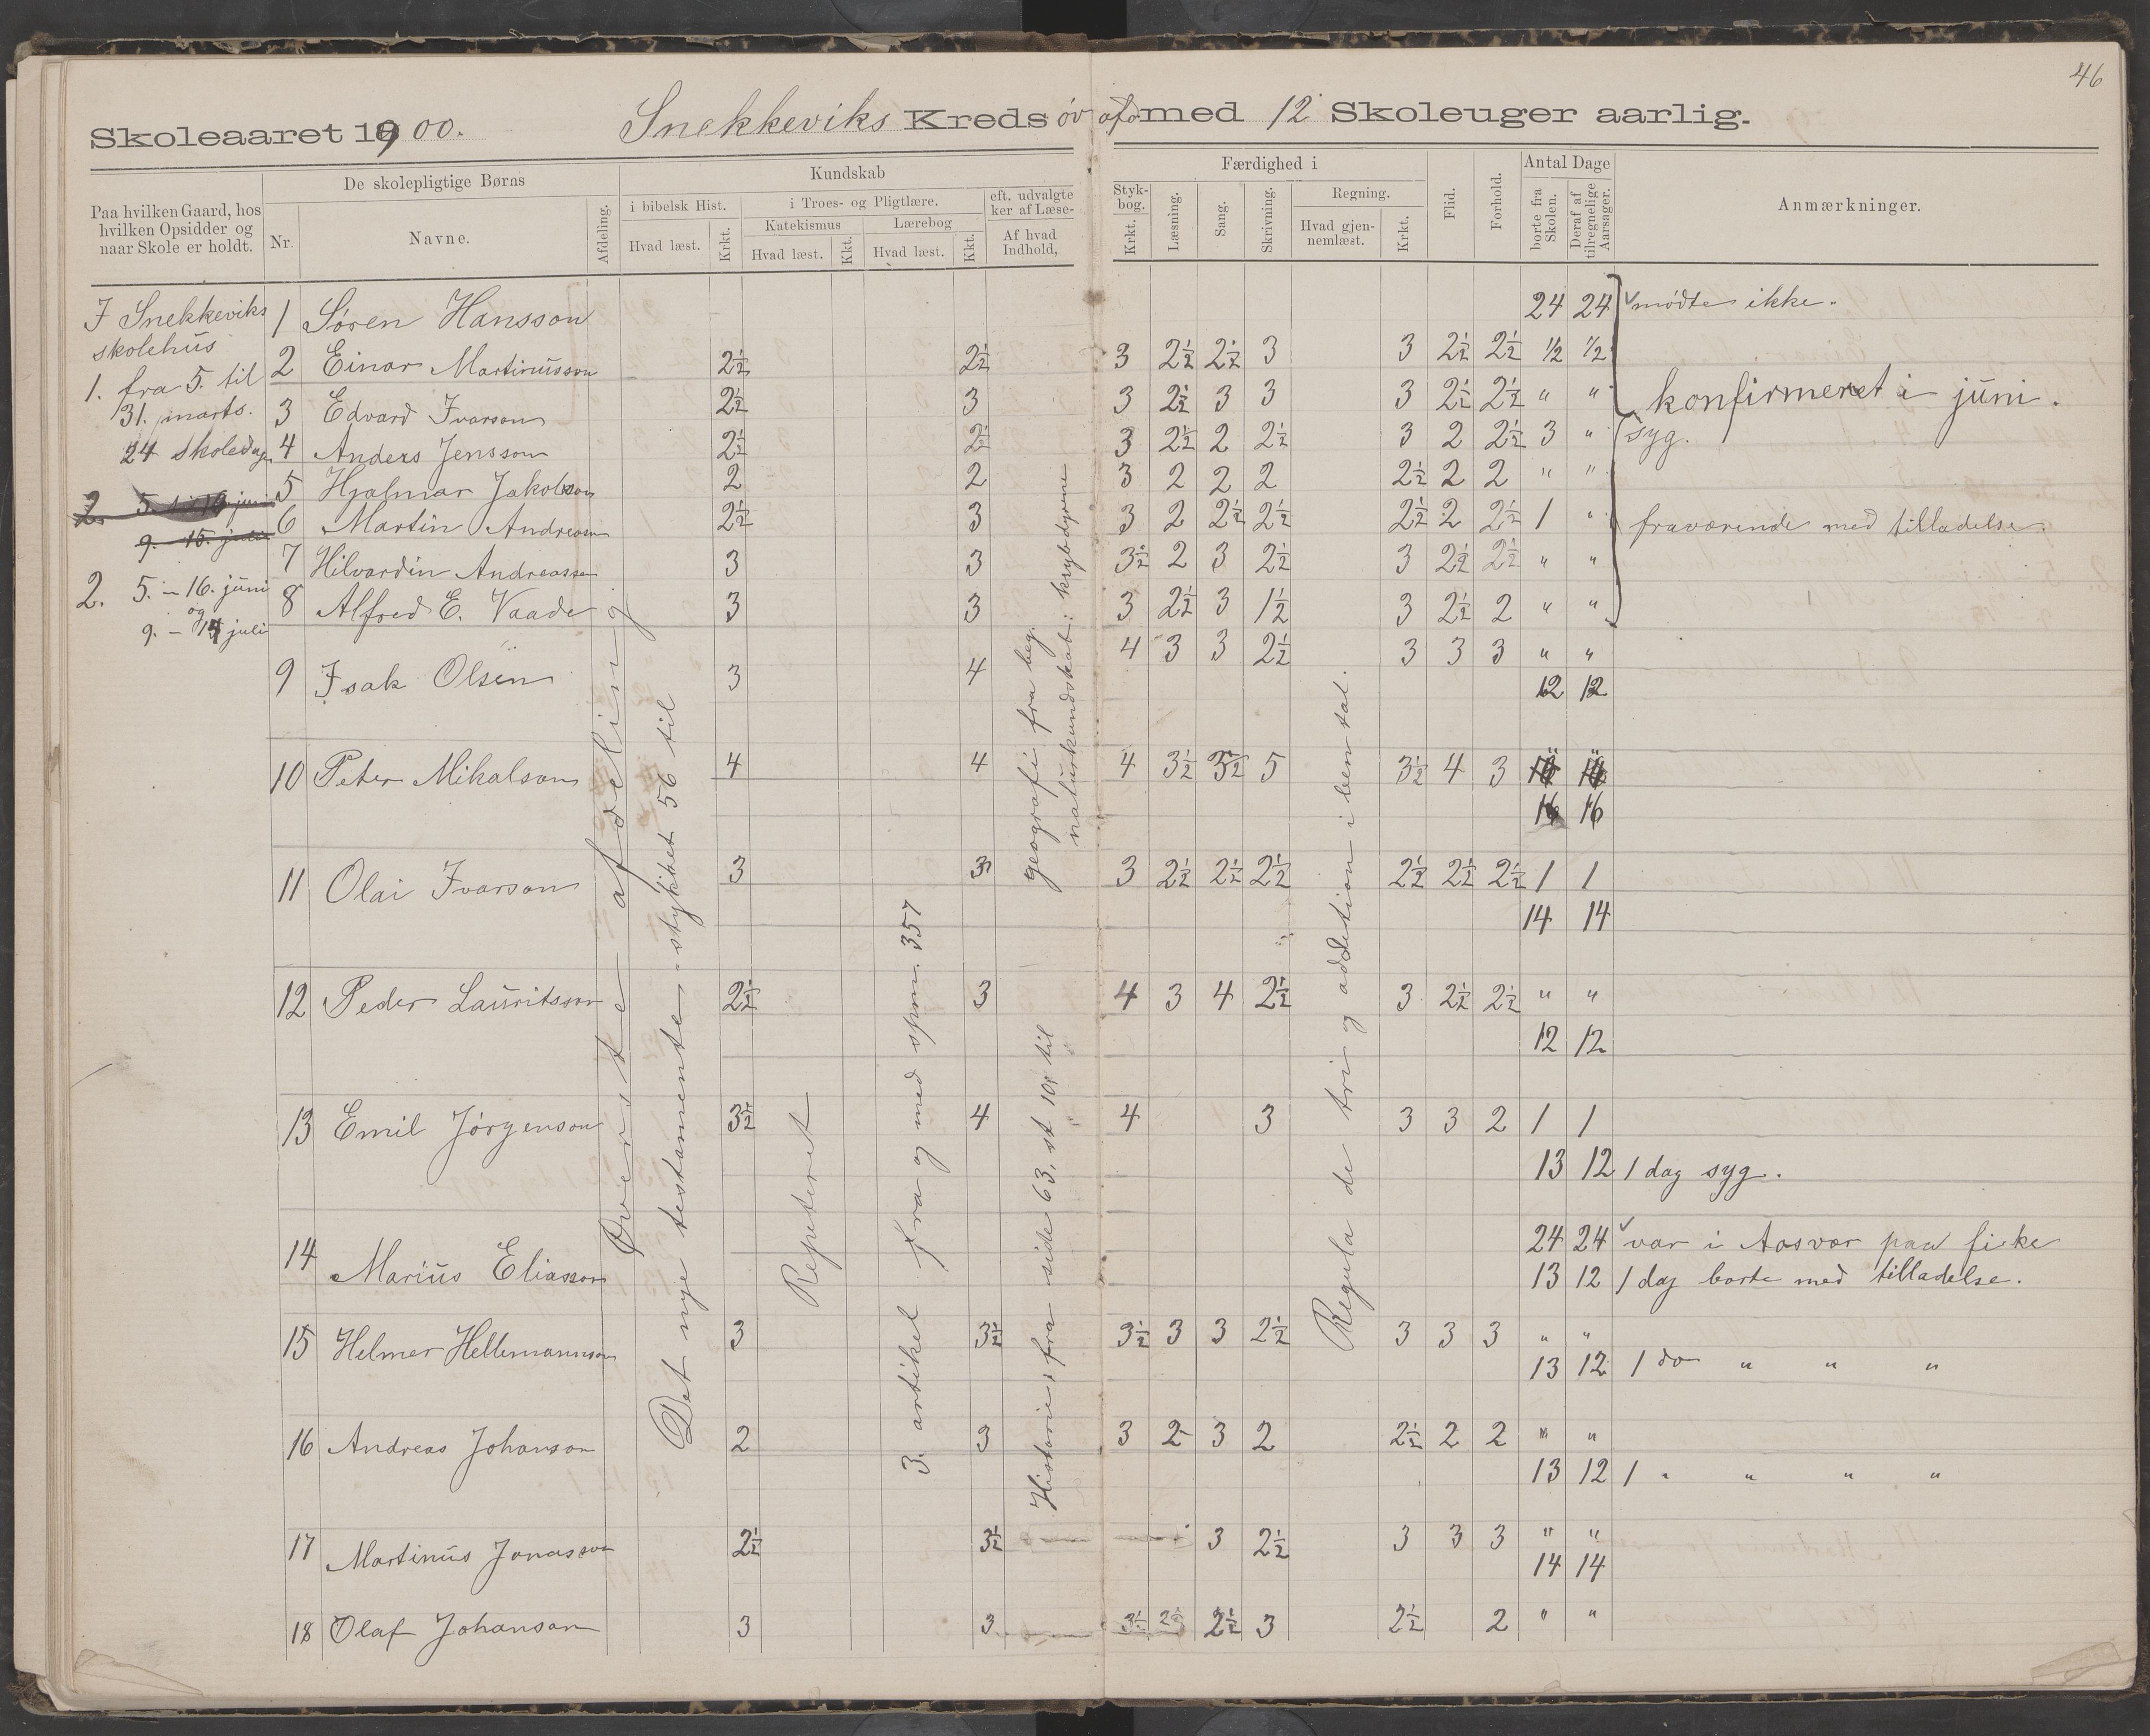 46
Skoleaaret 1900. Snekkeviks Kreds øv. afd. med 12 Skoleuger aarlig.
Paa hvilken Gaard, hos
hvilken Opsidder og
naar Skole er holdt.
Nr.
De skolepligtige Børns
Navne.
Afdeling.
Kundskab
i bibelsk Hist.
Hvad læst.
Krkt.
i Troes- og Pligtlære.
Katekismus
Hvad læst.
Kkt.
Lærebog
Hvad læst.
Kkt.
eft. udvalgte
ker af Læse-
Af hvad
Indhold,
Færdighed i
Styk-
bog.
Krkt.
Læsning.
Sang.
Skrivning.
Regning.
Hvad gjen-
nemlæst.
Krkt.
Flid.
Forhold.
Antal Dage
borte fra
Skolen.
Deraf af
tilregnelige
Aarsager.
Anmærkninger.
I Snekkeviks
skolehus
1. fra 5. til
31. marts.
24 skoledage
2. 5. til 16 juni
9. – 15. juli
2. 5. – 16. juni
og
9. – 14 juli
1 Søren Hansson 24 24 mødte ikke.
2 Einar Martinusson 2½ 2½ 3 2½ 2½ 3 3 2½ 2½ ½ ½
3 Edvard Ivarson 2½ 3 3 2½ 3 3 3 2½ 2½ " "
konfirmeret i juni.
4 Anders Jensson 2½ 2½ 3 2½ 2 2½ 3 2 2½ 3 " syg.
5 Hjalmar Jakobson 2 2 3 2 2 2 2½ 2 2 " "
6 Martin Andreassn 2½ 3 3 2 2½ 2½ 2½ 2 2½ 1 " fraværende med tilladelse.
7 Hilvardin Andreassen 3 3 3½ 2 3 2½ 3 2½ 2½ " "
8 Alfred E. Vaade 3 3 3 2½ 3 1½ 3 2½ 2 " "
9 Isak Olsen 3 4 4 3 3 2½ 3 3 3 " "
12 12
10 Peter Mikalson 4 4 4 3½ 3½ 5 3½ 4 3
16 16
11 Olai Ivarson 3 3 3 2½ 2½ 2½ 2½ 2½ 2½ 1 1
14 14
12 Peder Lauritsson 2½ 3 4 3 4 2½ 3 2½ 2½ " "
12 12
13 Emil Jørgenson 3½ 4 4 3 3 3 2 1 1
13 12 1 dag syg.
14 Marius Eliasson 24 24 var i Aasvær paa fiske
13 12 1 dag borte med tilladelse.
15 Helmer Hellemannson 3 3½ 3½ 3 3 2½ 3 3 3 " "
13 12 1 do " " "
16 Andreas Johanson 2 3 3 2 3 2 2½ 2 2 " "
13 12 1 " " " "
17 Martinus Jonasson 2½ 3½ 3 2½ 3 3 3 " "
14 14
18 Olaf Johanson 3 3 3½ 2½ 2½ 3 2½ 2 " "
Øverste afdeling
Det nye testamente. stykket 56 til
Repeteret
3. artikel fra og med spm. 357
Historie: fra side 63, st 10, til
geografi fra beg.
naturkundskab: krybdyrene
Regula de tri og addition i ben tal.